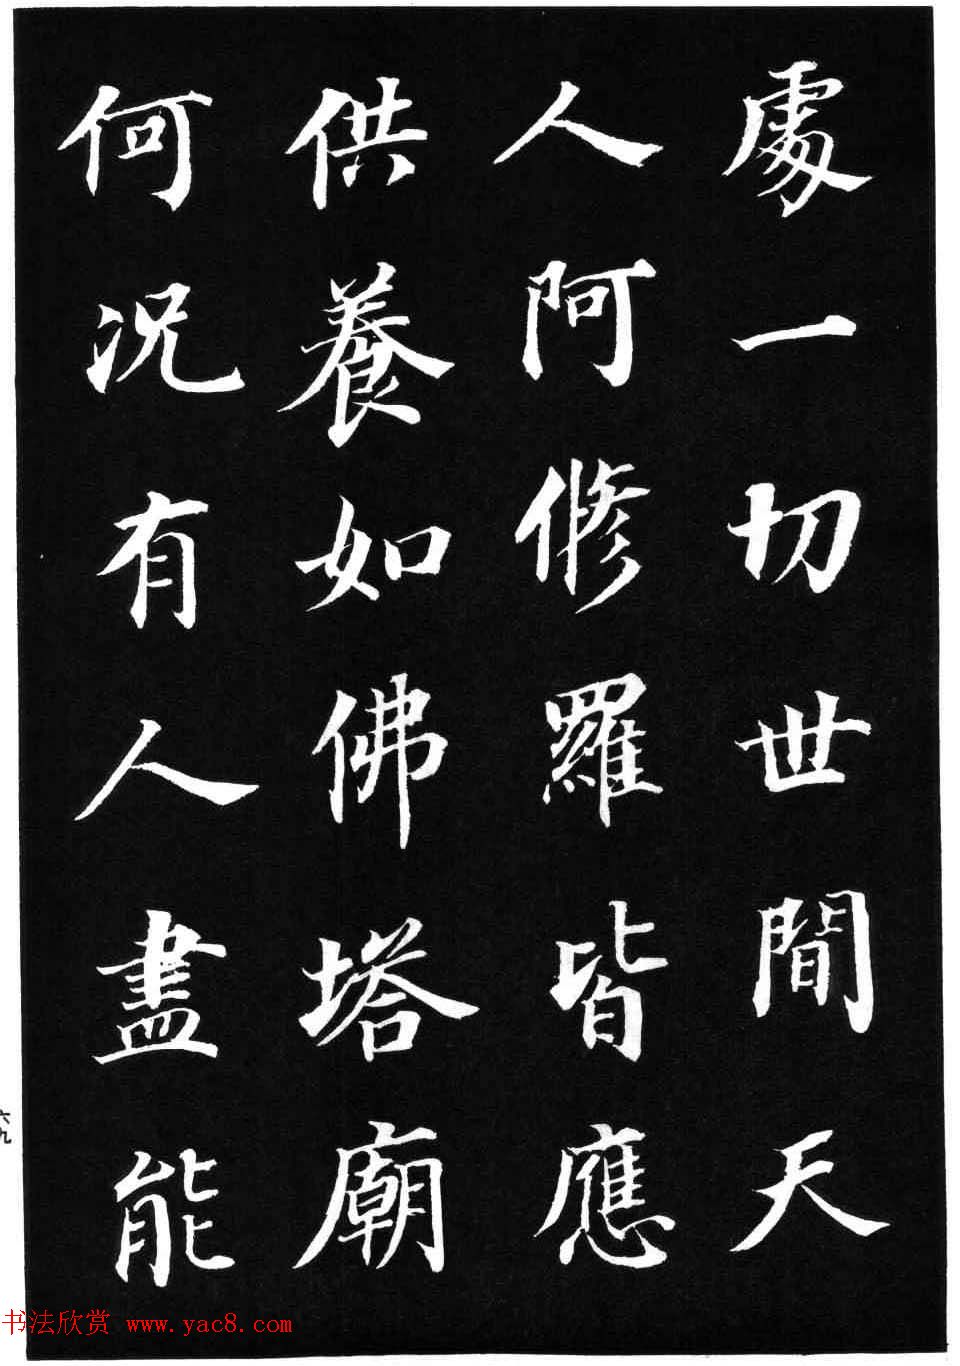 處一切世間天
人阿修羅皆應
供養如佛塔廟
何況有人盡能
六九
书法欣赏 www.yac8.com